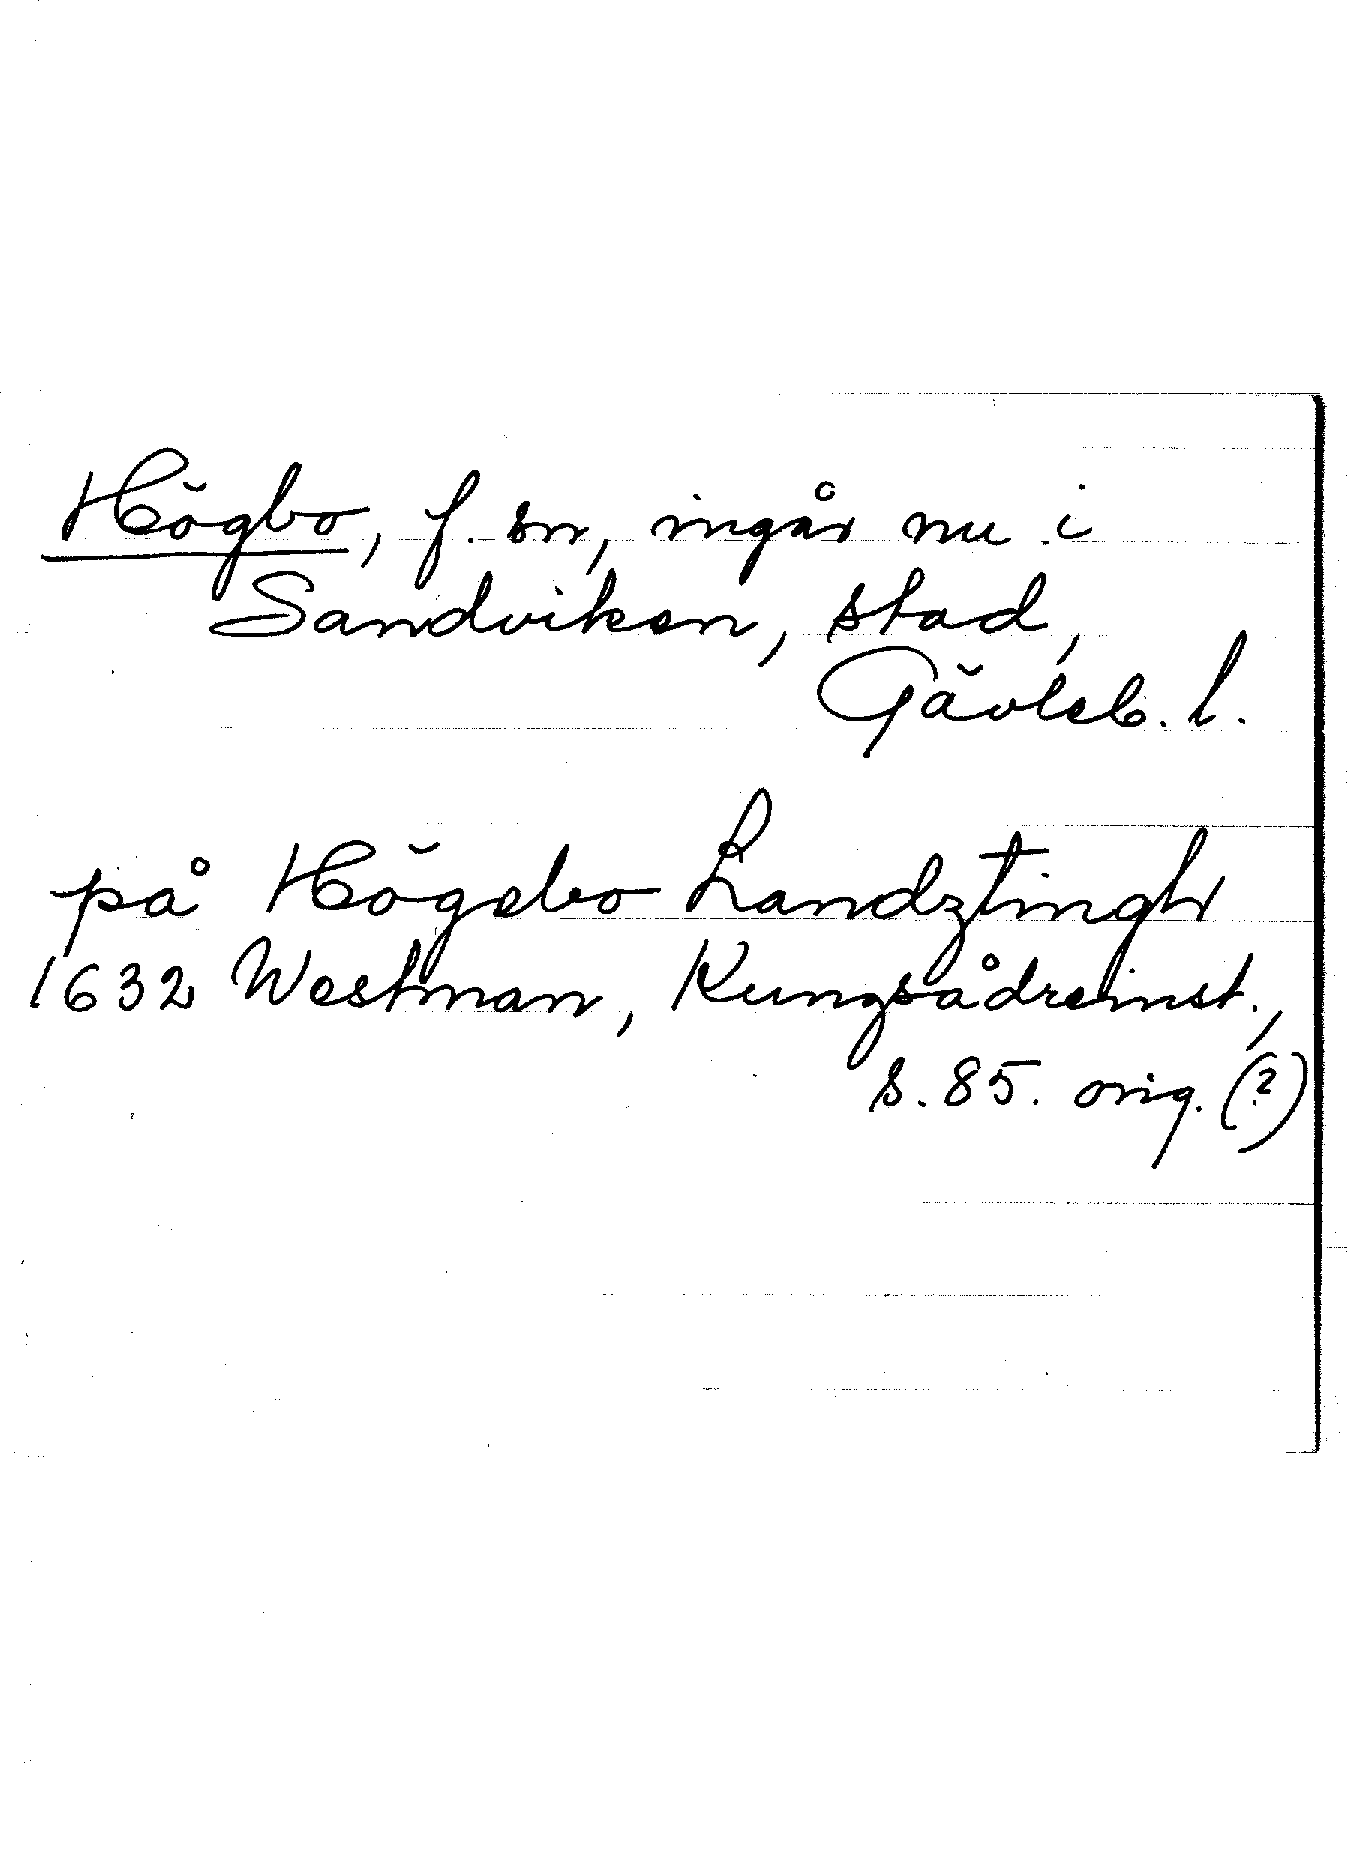 Högbo, f. sn, ingår nu i
Sandviken, stad,
Gävleb. l.
på Högebo Landztingh
1632 Westman, Kungsådreinst.,
s. 85. orig. (?)